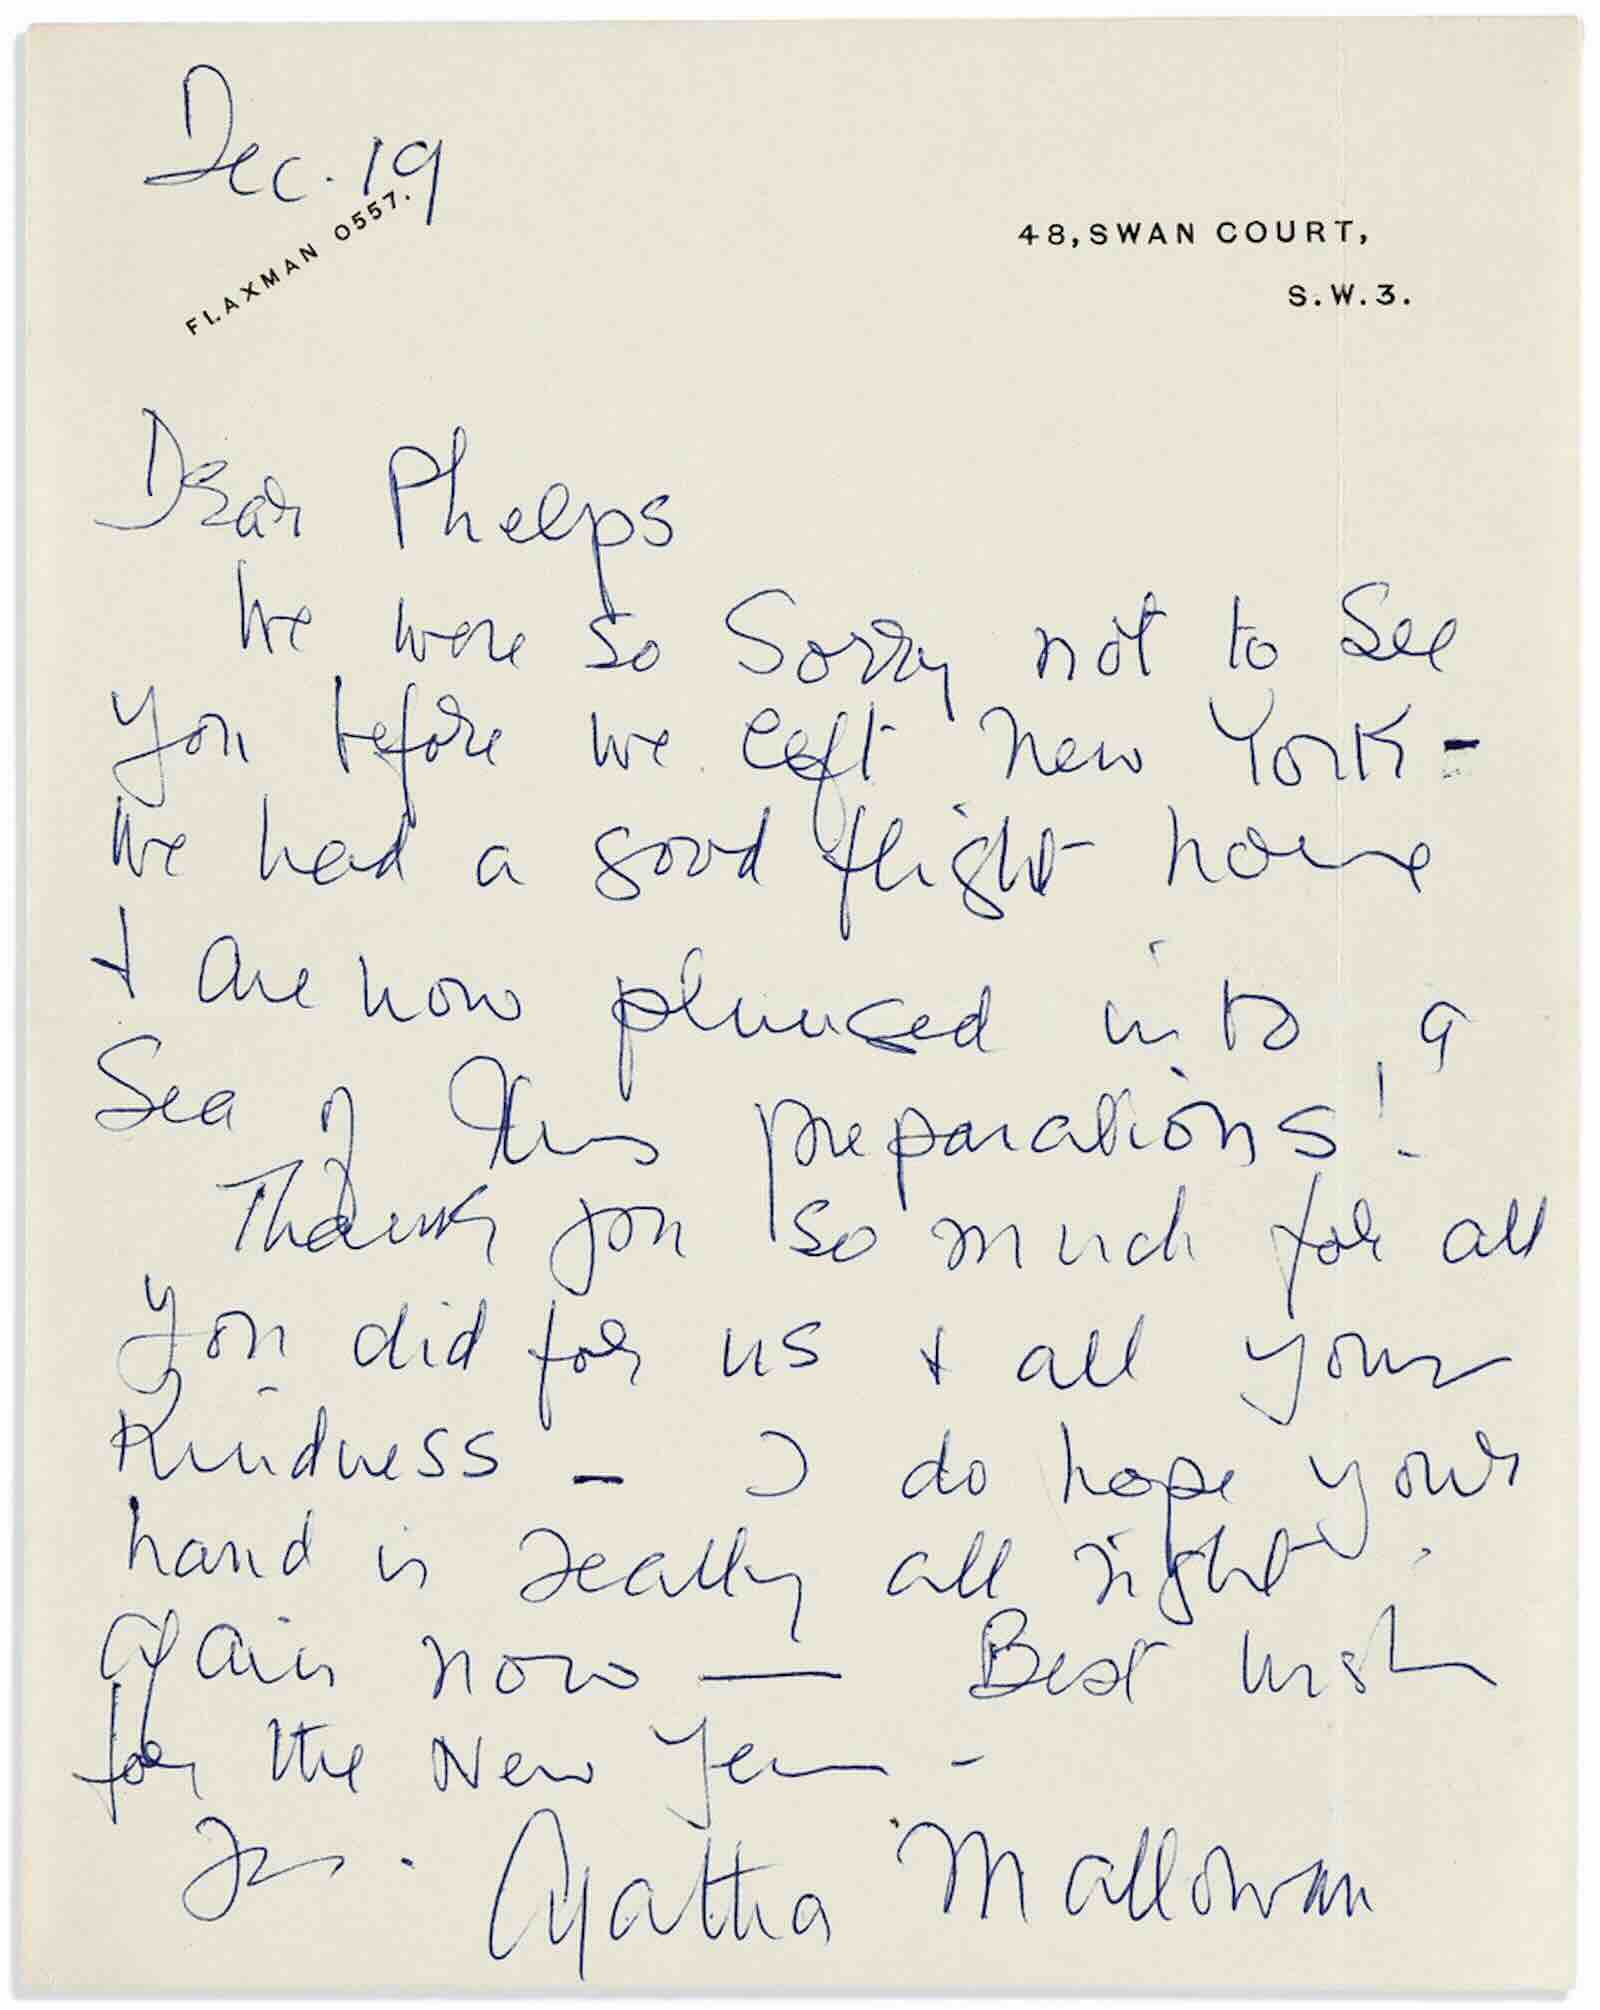 Dec. 19
FLAXMAN 0557.
48, SWAN COURT,
S.W.3.
Dear Phelps
We were so sorry not to see
you before we left New York -
We had a good flight home
+ are now plunged into a
Sea of Xmas preparations!
Thank you so much for all
you did for us + all your
Kindness - I do hope your
hand is really all right
again now — Best wishes
for the New Year -
Agatha Mallowan